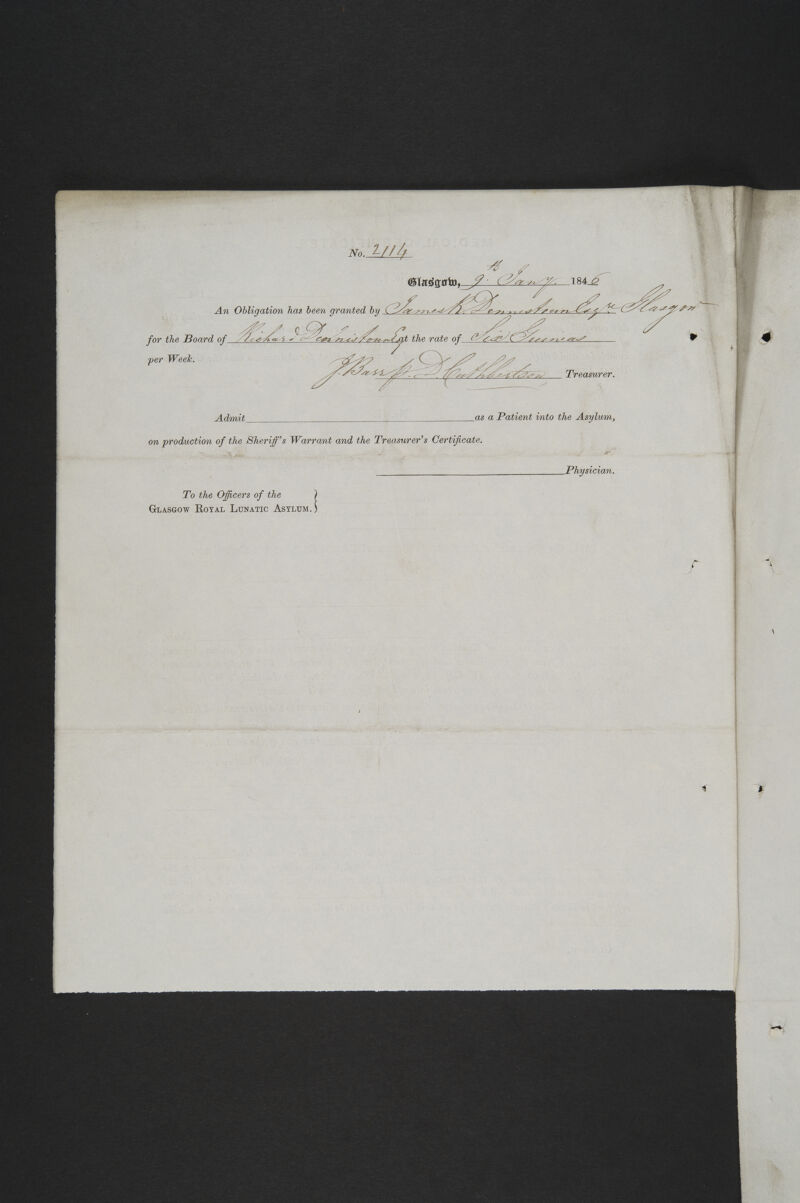 No. 2114
Glasgow, 9th Jany. 1846
An Obligation has been granted by James R. Dennistoun Esqre Glasgow
for the Board of Richard Dennistoun Esq at the rate of Six Guineas
per Week.
J. Barr p. D. Cuthbertson Treasurer.
Admit as a Patient into the Asylum,
on production of the Sheriff's Warrant and the Treasurer's Certificate.
Physician.
To the Officers of the }
Glasgow Royal Lunatic Asylum. }